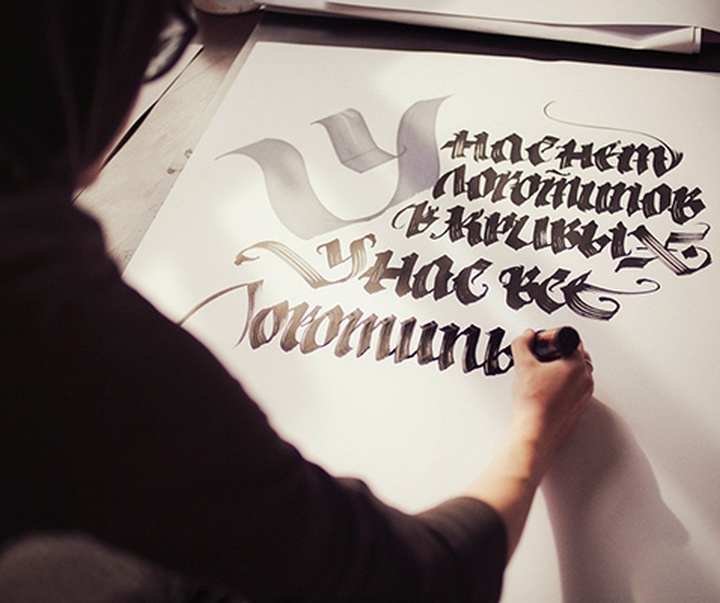 У нас нет
логотипов
в кривых
У нас все
логотипы